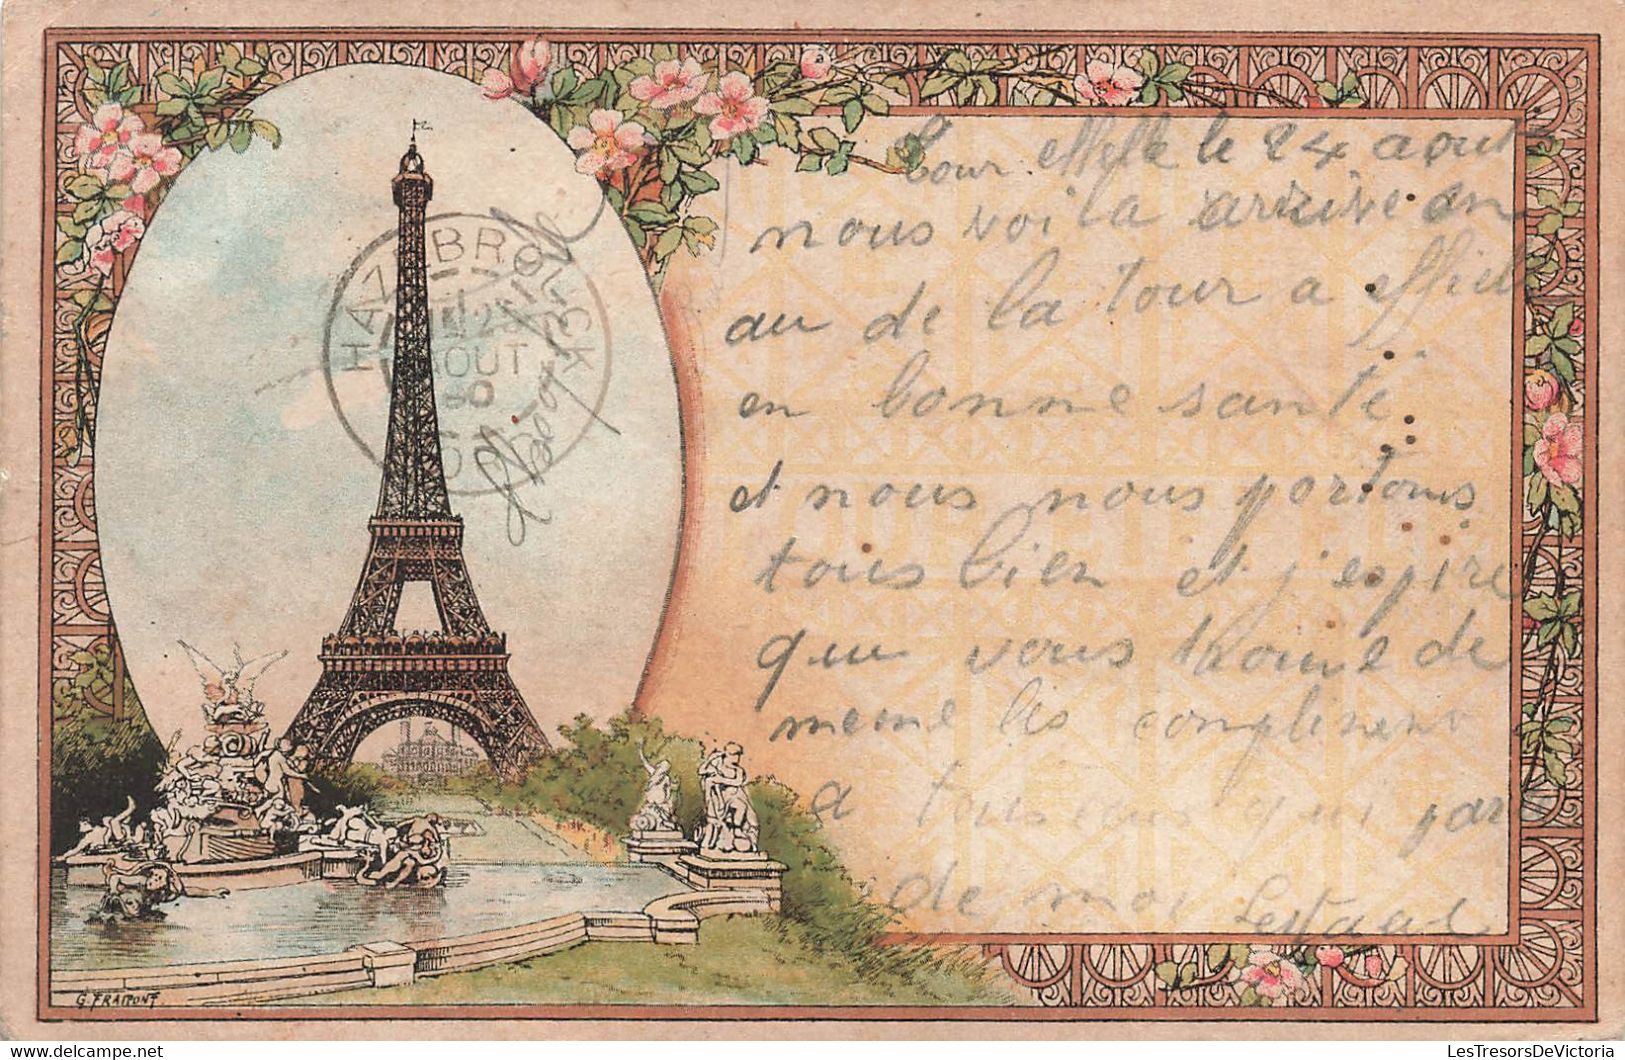 Tour Effelle le 24 aout
nous voila arrive en
au de la tour a effiel
en bonne santé.
et nous nous portons
tous bien et j'espire
que vous trouve de
meme les compliment
a tous ceus qui parl
de moi
HAZEBROUCK
AOUT
G. FRAIPONT
www.delcampe.net
LesTresorsDeVictoria